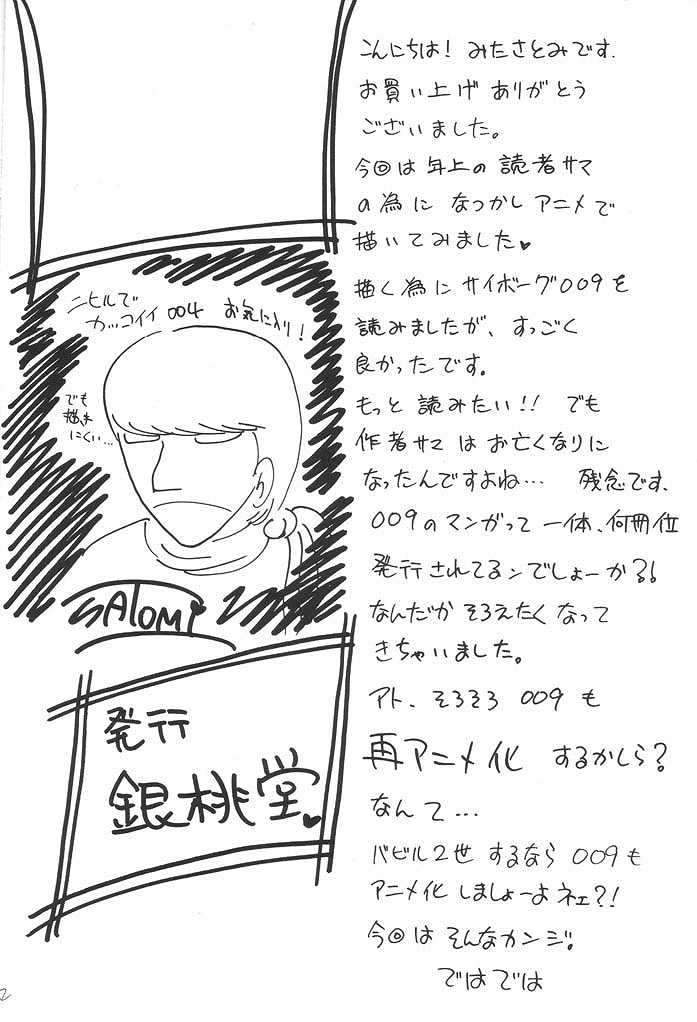 こんにちは! みたさとみです.
お買い上げ ありがとう
ございました。
今回は 年上の 読者サマ
の為に なつかしアニメで
描いてみました♥
描く為に サイボーグ009を
読みましたが、すっごく
良かったです。
もっと 読みたい!! でも
作者サマ は お亡くなりに
なったんですよね… 残念です.
009のマンガって 一体、何冊位
発行されてるンでしょーか?!
なんだか そろえたくなって
きちゃいました。
アト、そろそろ 009 も
再アニメ化 するかしら?
なんて…
バビル2世 するなら 009も
アニメ化 しましょーよネェ?!
今回は そんなカンジ。
ではでは
ニヒルで
カッコイイ 004 お気に入り!
でも
描きにくい…
SAtoMi
発行
銀桃堂♥
2